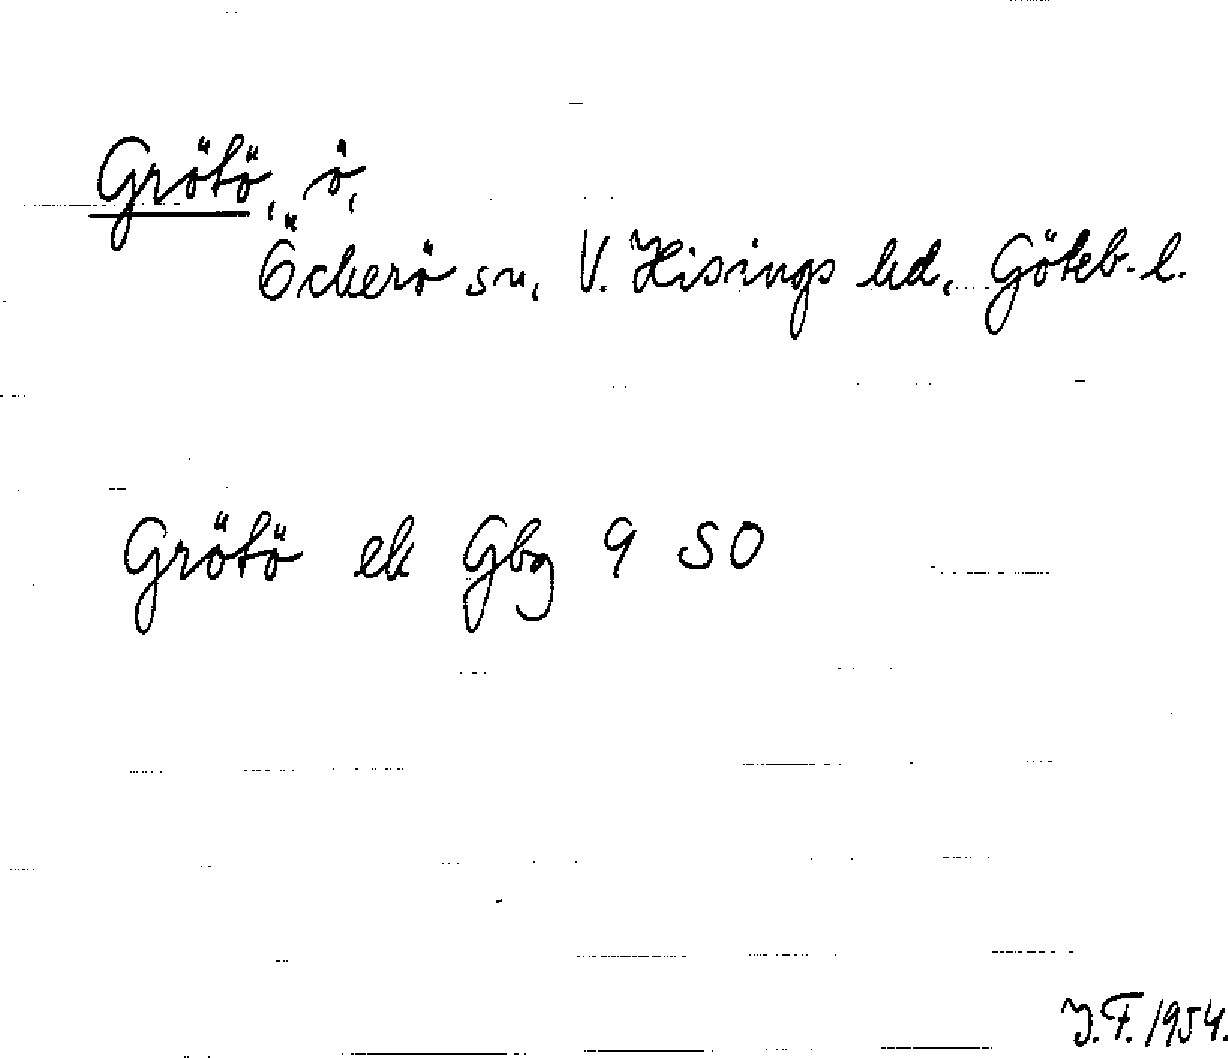 Grötö, ö,
Öckerö sn, V. Hisings hd, Göteb. l.
Grötö ek Gbg 9 SO
J.F. 1954.